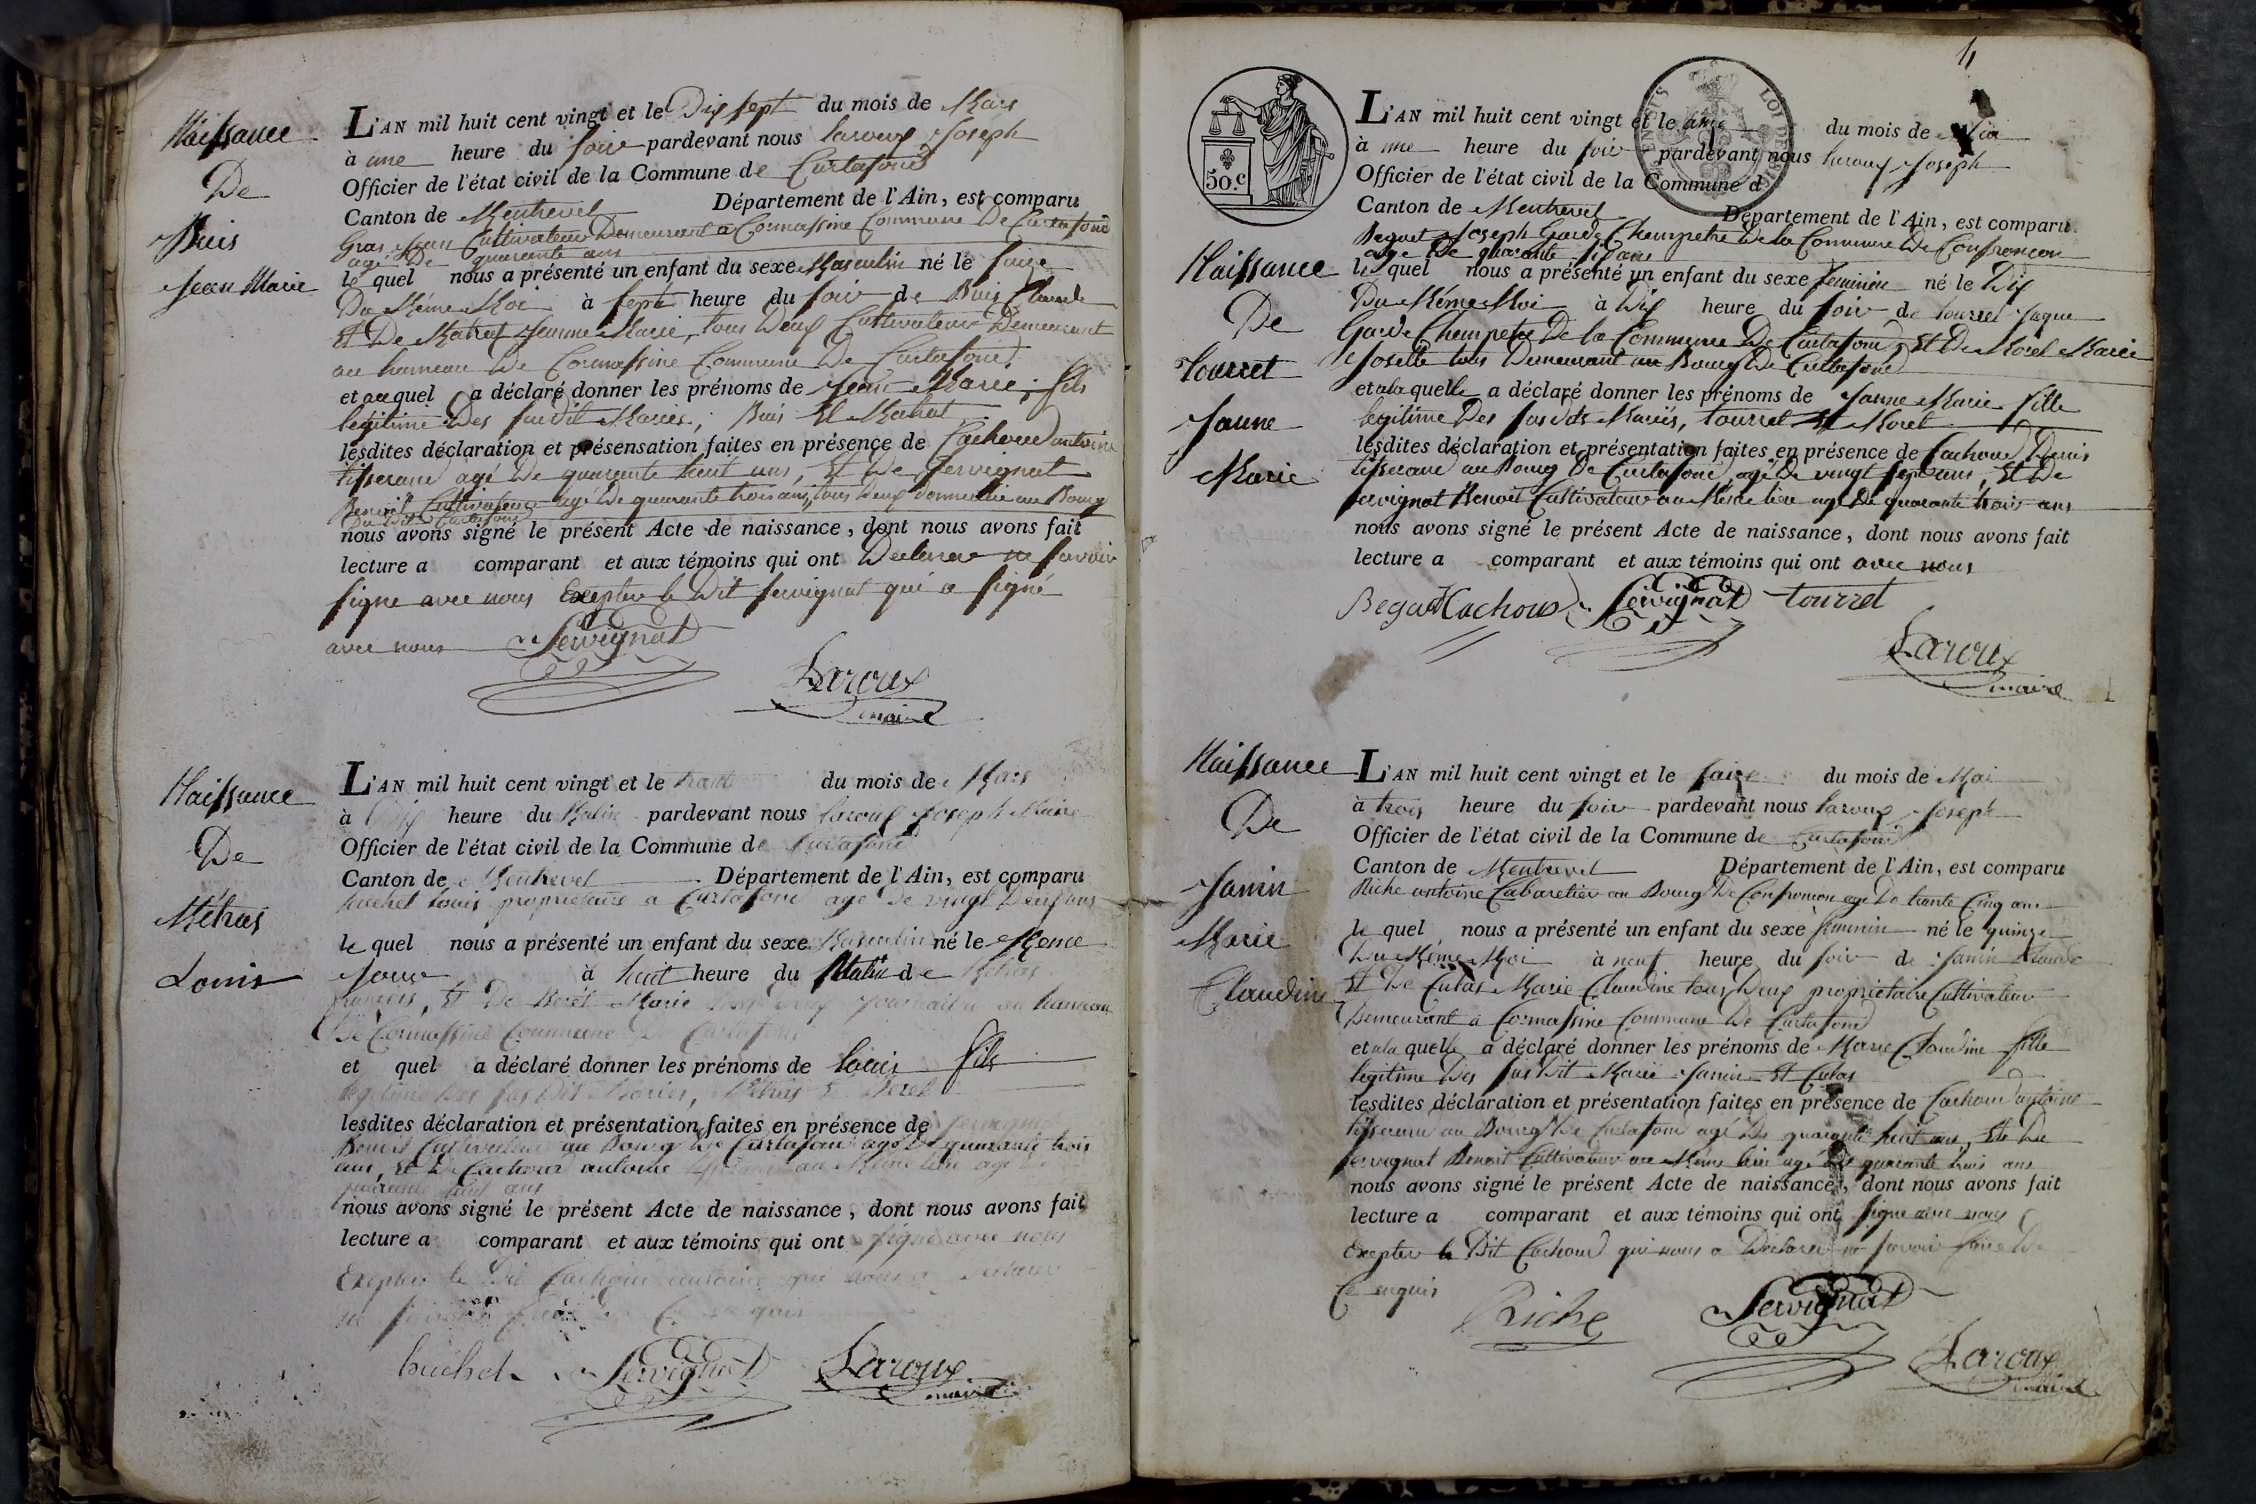 Naissance
De
Buis
Jean Marie
L'AN mil huit cent vingt et le Dix sept du mois de Mars
à une heure du soir pardevant nous Laroux Joseph
Officier de l'état civil de la Commune de Curtafond
Canton de Montrevel Département de l'Ain, est comparu
Gras Jean Cultivateur Demeurant a Cormassine Commune De Curtafond
agé De quarante ans
le quel nous a présenté un enfant du sexe Masculin né le saize
Du Même Moi à sept heure du soir de Buis Claude
Et De Jeanne Marie, tous Deux Cultivateur Demeurant
au hameau De Cormassine Commune De Curtafond
et au quel a déclaré donner les prénoms de Jean Marie, fils
légitime Des susdit Mariés, Buis Et
lesdites déclaration et présensation faites en présence de Cachoud antoine
tisserand agé De quarante huit ans, Et De Servignat
Benoit Cultivateur agé De quarante trois ans, tous Deux Domicilié au Bourg
Du Dit Curtafond
nous avons signé le présent Acte de naissance, dont nous avons fait
lecture a comparant et aux témoins qui ont Declarer ne savoir
signe avec nous Excepter le Dit Servignat qui a signé
avec nous Servignat
Laroux
maire
Naissance
De
Métras
Louis
L'AN mil huit cent vingt et le trante du mois de Mars
à Dix heure du Matin pardevant nous Laroux Joseph Maire
Officier de l'état civil de la Commune de Curtafond
Canton de Montrevel Département de l'Ain, est comparu
huchet Louis propriétaire a Curtafond agé De vingt Deux ans
le quel nous a présenté un enfant du sexe Masculin né le Même
Jour à huit heure du Matin de Métras
françois, Et De Morel Marie tous Deux Journalier au hameau
De Cormassine Commune De Curtafond
et quel a déclaré donner les prénoms de Louis fils
légitime Des sus Dit Mariés, Métras Et Morel
lesdites déclaration et présentation faites en présence de Servignat
Benoit Cultivateur au Bourg De Curtafond agé De quarante trois
ans, Et De Cachoud antoine tisserand au Même lieu agé De
quarante huit ans
nous avons signé le présent Acte de naissance, dont nous avons fait
lecture a comparant et aux témoins qui ont signé avec nous
Excepter le Dit Cachoud antoine qui nous a Declarer
ne savoir faire De Ce requis
huchet Servignat Laroux
maire
4
50.c
LOI DE
Naissance
De
Tourret
Janne
Marie
L'AN mil huit cent vingt et le du mois de Mai
à une heure du soir pardevant nous Laroux Joseph
Officier de l'état civil de la Commune d
Canton de Montrevel Département de l'Ain, est comparu
Joseph Garde Champetre De la Commune De Confrançon
age De quarante ans
le quel nous a présenté un enfant du sexe feminin né le Dix
Du Même Moi à Dix heure du soir de Tourret Jaque
Garde Champetre De la Commune De Curtafond, Et De Morel Marie
Josette tous Demeurant au Bourg De Curtafond
et a la quelle a déclaré donner les prénoms de Janne Marie fille
legitime Des sus dit Mariés, tourret Et Morel
lesdites déclaration et présentation faites en présence de Cachoud Denis
tisserand au Bourg De Curtafond, agé De vingt sept ans, Et De
servignat Benoit Cultivateur au Même lieu agé De quarante trois ans
nous avons signé le présent Acte de naissance, dont nous avons fait
lecture a comparant et aux témoins qui ont avec nous
Cachoud Servignat tourret
Laroux
maire
Naissance
De
Janin
Marie
Claudine
L'AN mil huit cent vingt et le saize du mois de Mai
à trois heure du soir pardevant nous Laroux Joseph
Officier de l'état civil de la Commune de Curtafond
Canton de Montrevel Département de l'Ain, est comparu
Riche antoine Cabaretier au Bourg De Confrançon agé De trante Cinq ans
le quel nous a présenté un enfant du sexe feminin né le quinze
Du Même Moi à neuf heure du soir de Janin Claude
Et De Cutas Marie Claudine tous Deux propriétaire Cultivateur
Demeurant a Cormassine Commune De Curtafond
et a la quelle a déclaré donner les prénoms de Marie Claudine fille
legitime Des sus Dit Marié Janin Et Cutas
lesdites déclaration et présentation faites en présence de Cachoud antoine
tisserand au Bourg De Curtafond agé De quarante huit ans, Et De
servignat Benoit Cultivateur au Même lieu agé De quarante trois ans
nous avons signé le présent Acte de naissance, dont nous avons fait
lecture a comparant et aux témoins qui ont signe avec nous
Excepter le Dit Cachoud qui nous a Declarer ne savoir faire De
Ce requis
Riche Servignat
Laroux
maire